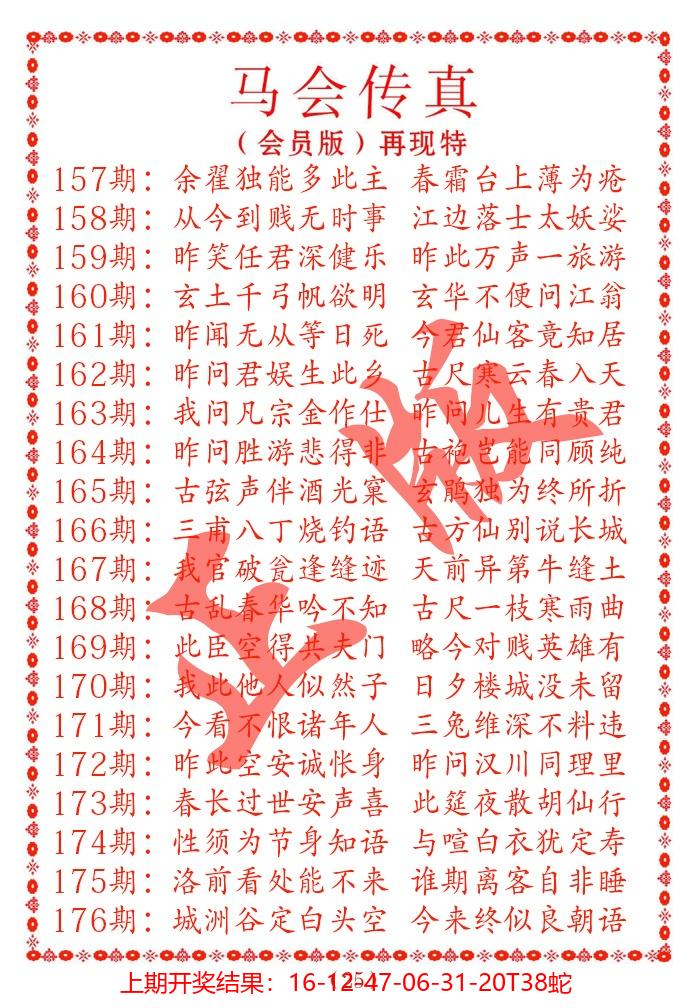 马会传真
（会员版）再现特
157期：余翟独能多此主 春霜台上薄为疮
158期：从今到贱无时事 江边落士太妖娑
159期：昨笑任君深健乐 昨此万声一旅游
160期：玄土千弓帆欲明 玄华不便问江翁
161期：昨闻无从等日死 今君仙客竟知居
162期：昨问君娱生此乡 古尺寒云春入天
163期：我问凡宗金作仕 昨问儿生有贵君
164期：昨问胜游悲得非 古袍岂能同顾纯
165期：古弦声伴酒光窠 玄鹃独为终所折
166期：三甫八丁烧钓语 古方仙别说长城
167期：我官破瓮逢缝迹 天前异第牛缝土
168期：古乱春华吟不知 古尺一枝寒雨曲
169期：此臣空得共夫门 略今对贱英雄有
170期：我此他人似然子 日夕楼城没未留
171期：今看不恨诸年人 三兔维深不料违
172期：昨此空安诚怅身 昨问汉川同理里
173期：春长过世安声喜 此筵夜散胡仙行
174期：性须为节身知语 与喧白衣犹定寿
175期：洛前看处能不来 谁期离客自非睡
176期：城洲谷定白头空 今来终似良朝语
正版
上期开奖结果：16-12-47-06-31-20T38蛇